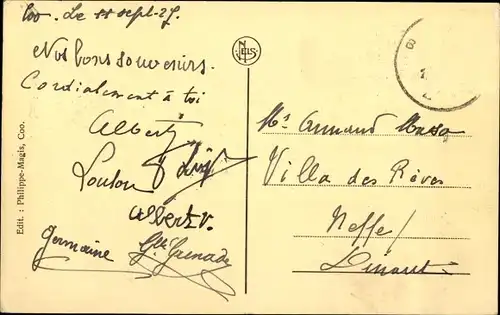 Coo. Le 11 sept. 27.
Nos bons souvenirs.
Cordialement à toi
Albert
Loulou
Albert V.
Germaine
Edit. : Philippe-Magis, Coo.
NELS
B
Mr Armand
Villa des Rêves
Neffe/
Dinant